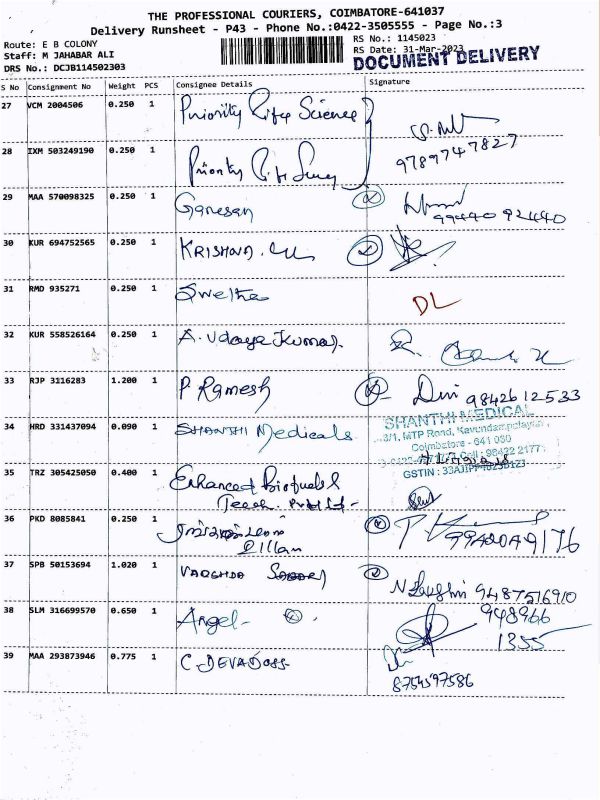 THE PROFESSIONAL COURIERS, COIMBATORE-641037
Delivery Runsheet - P43 - Phone No.:0422-3505555 - Page No.:3
Route: E B COLONY
RS No.: 1145023
Staff: M JAHABAR ALI
RS Date: 31-Mar-2023
DRS No.: DCJB114502303
DOCUMENT DELIVERY
S No Consignment No Weight PCS Consignee Details Signature
27 VCM 2004506 0.250 1 Priority Science
28 IXM 503249190 0.250 1 Priority
9789747827
29 MAA 570098325 0.250 1 Ganesan
9944092440
30 KUR 694752565 0.250 1 KRISHNA.
31 RMD 935271 0.250 1 Swetha DL
32 KUR 558526164 0.250 1 A. Udaya Kumar.
33 RJP 3116283 1.200 1 P Ramesh 9842612533
34 HRD 331437094 0.090 1 SHANTHI Medicals
SHANTHI MEDICAL
3/1, MTP Road, Kavundampalayam
Coimbatore - 641 030
Cell : 98422 21771
GSTIN :
35 TRZ 305425050 0.400 1 Enhanced Biofuels &
Tech. Pvt Ltd -
36 PKD 8085841 0.250 1
Pillan
37 SPB 50153694 1.020 1 VARSHDA
9487516910
38 SLM 316699570 0.650 1 Angel- 948966
1355
39 MAA 293873946 0.775 1 C. DEVADOSS
8754597586